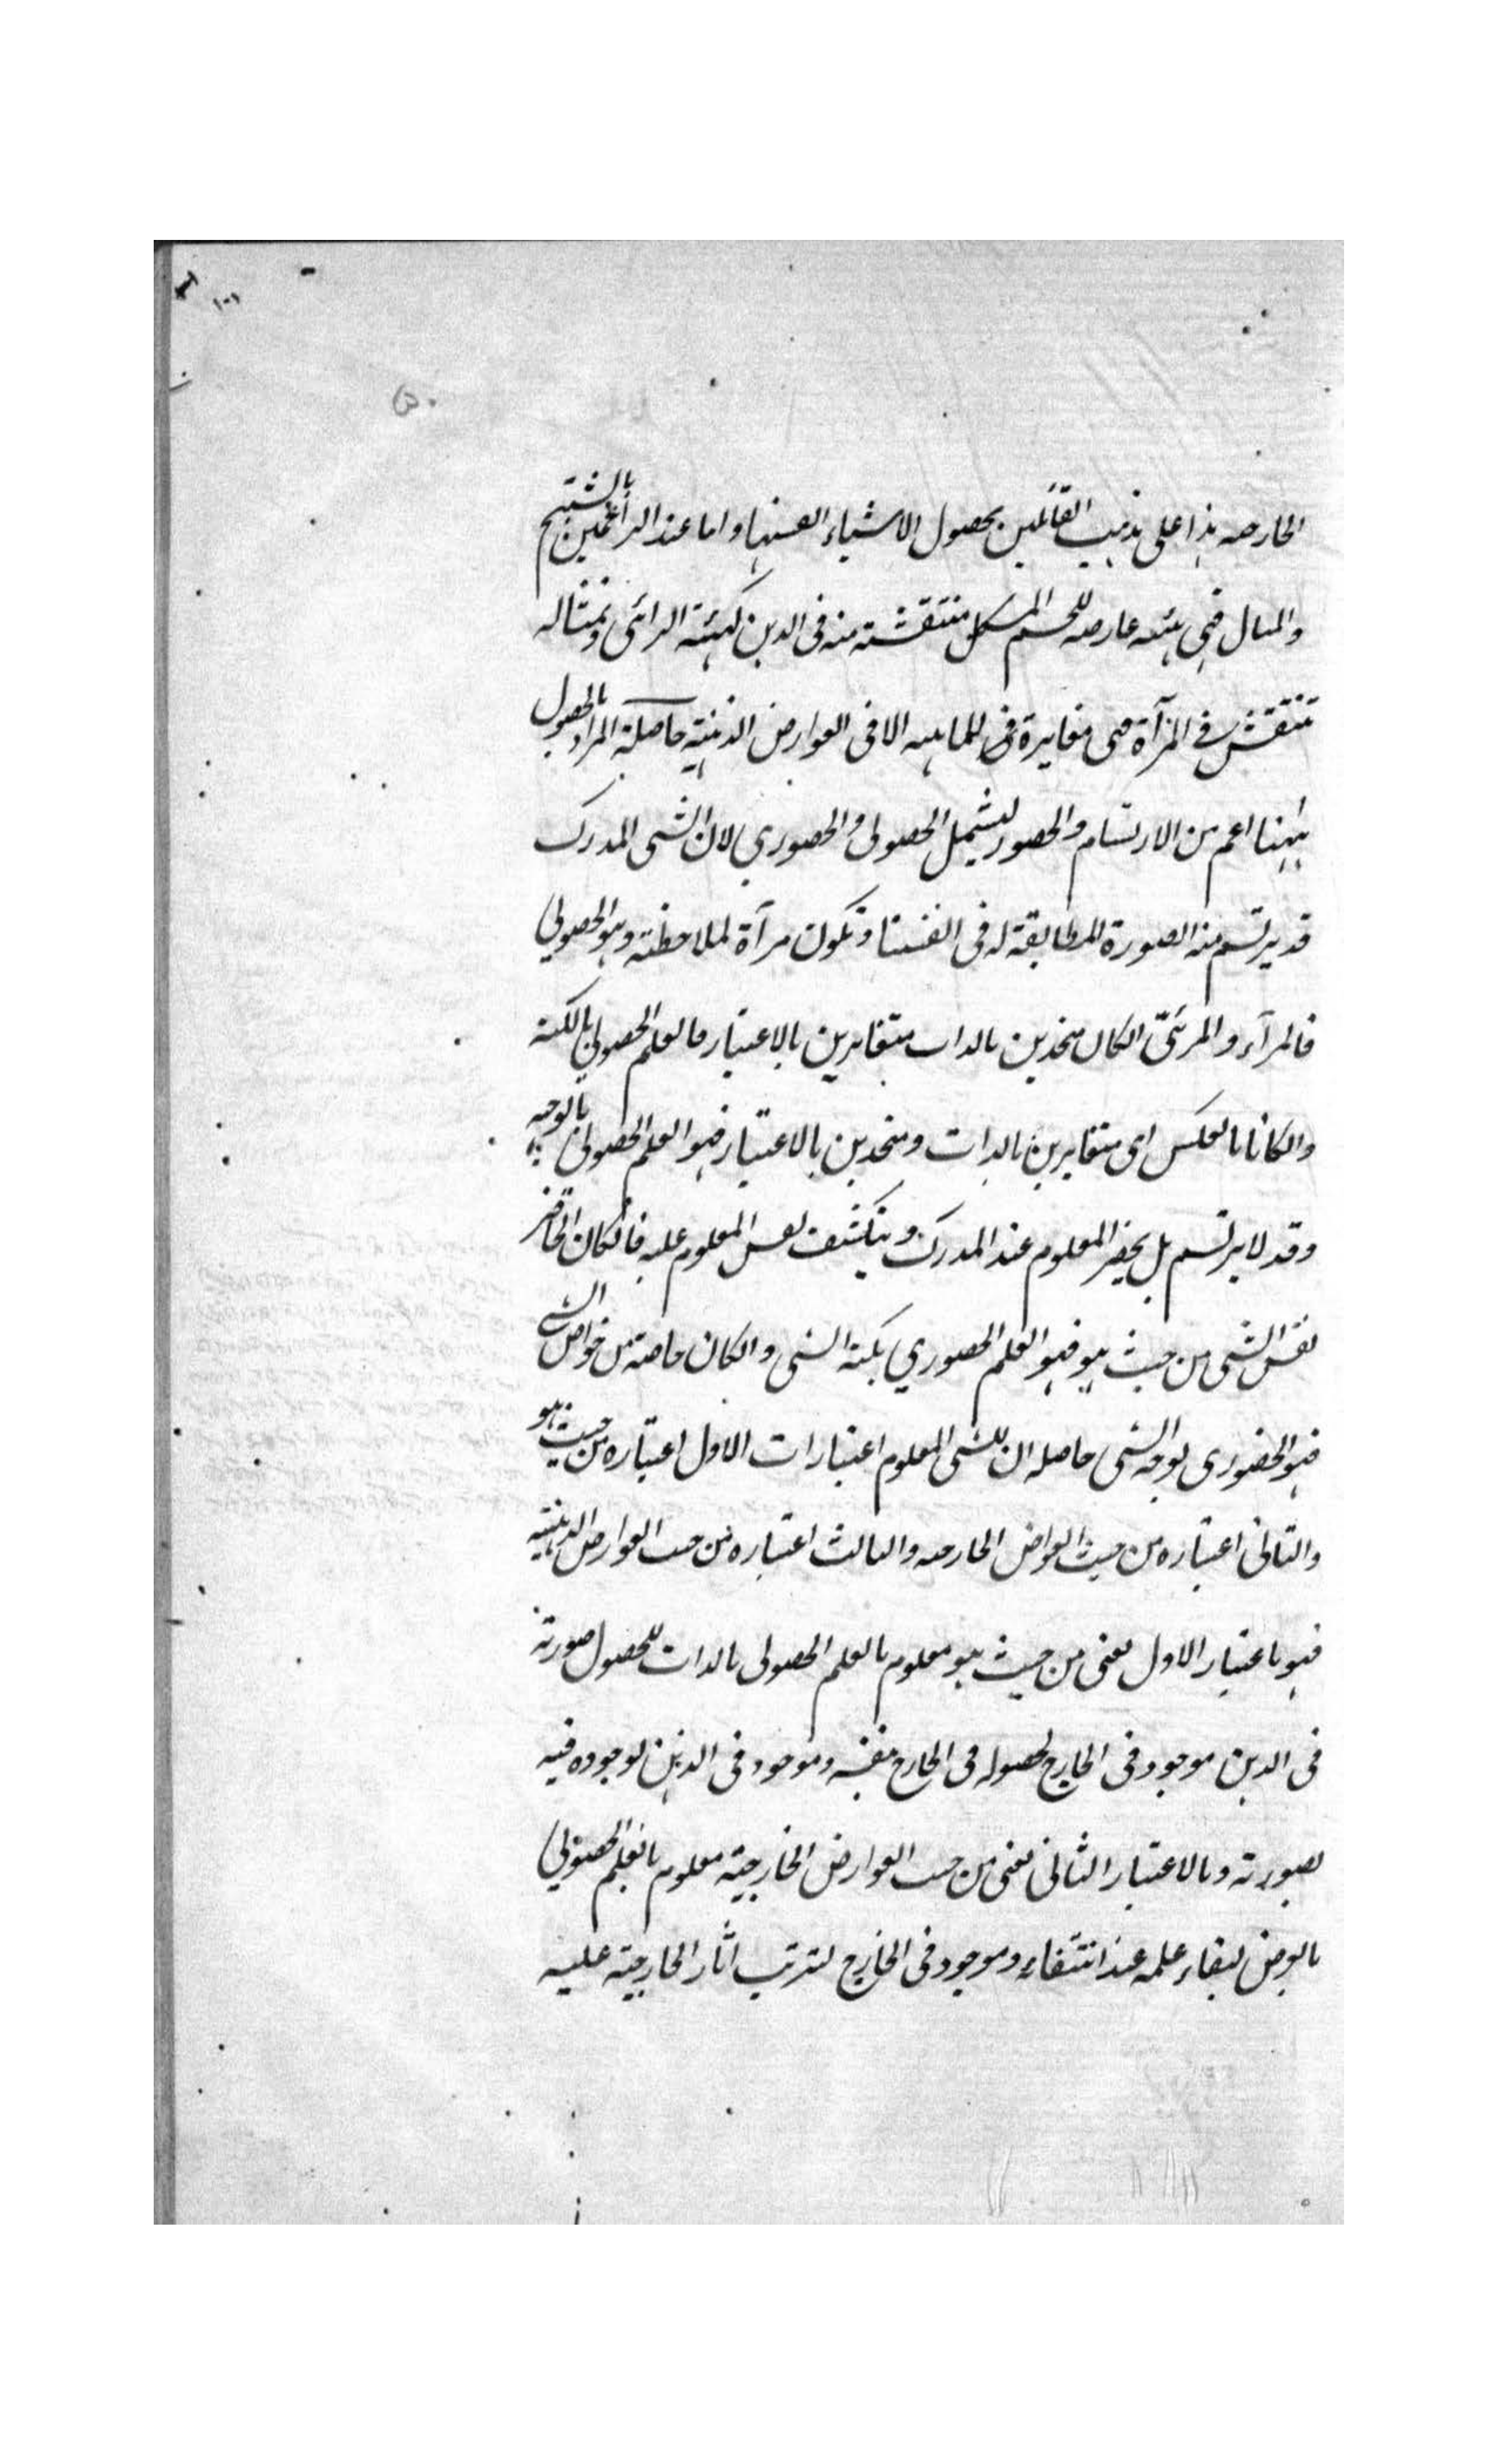 الخارجه هذا على مذهب القائلين بحصول الاشياء انفسها واما عند الزاعمين بالشبح
والمثال فهى هيئه عارضه للجسم المشكل منتقشة منه فى الذهن كهيئة الرائى وتمثاله
تنتقش فى المرآة وهى مغايرة للماهيه الا فى العوارض الذهنية حاصلة المراد بالحصول
ههنا اعم من الارتسام والحضور ليشمل الحصولى والحضوري لان الشى المدرك
قد يرتسم منه الصورة المطابقة له فى انفسنا وتكون مرآة لملاحظته وهو الحصولي
فالمرآء والمرئىّ انكان متحدين بالذات متغايرين بالاعتبار فالعلم الحصولي بالكنه
وانكانا بالعكس اى متغايرين بالذات ومتحدين بالاعتبار فهو العلم الحصولى بالوجه
وقد لا يرتسم بل يحضر المعلوم عند المدرك وينكشف نفس المعلوم عليه فانكان الحاضر
نفس الشى من حيث هو فهو العلم الحضوري بكنه الشى وانكان خاصته من خواص الشى
فهو الحضورى بوجه الشى حاصله ان للشى المعلوم اعتبارات الاول اعتباره من حيث هو
والثانى اعتباره من حيث العوارض الخارجيه والثالث اعتباره من حيث العوارض الذهنية
فهو باعتبار الاول يعنى من حيث هو معلوم بالعلم الحصولى بالذات لحصول صورته
فى الذهن موجود فى الخارج لحصوله فى الخارج بنفسه وموجود فى الذهن لوجوده فيه
بصورته وبالاعتبار الثانى يعنى من حيث العوارض الخارجية معلوم بالعلم الحصولي
بالعرض لبقاء علمه عند انتفاءه وموجود فى الخارج لترتب اثار الخارجية عليه